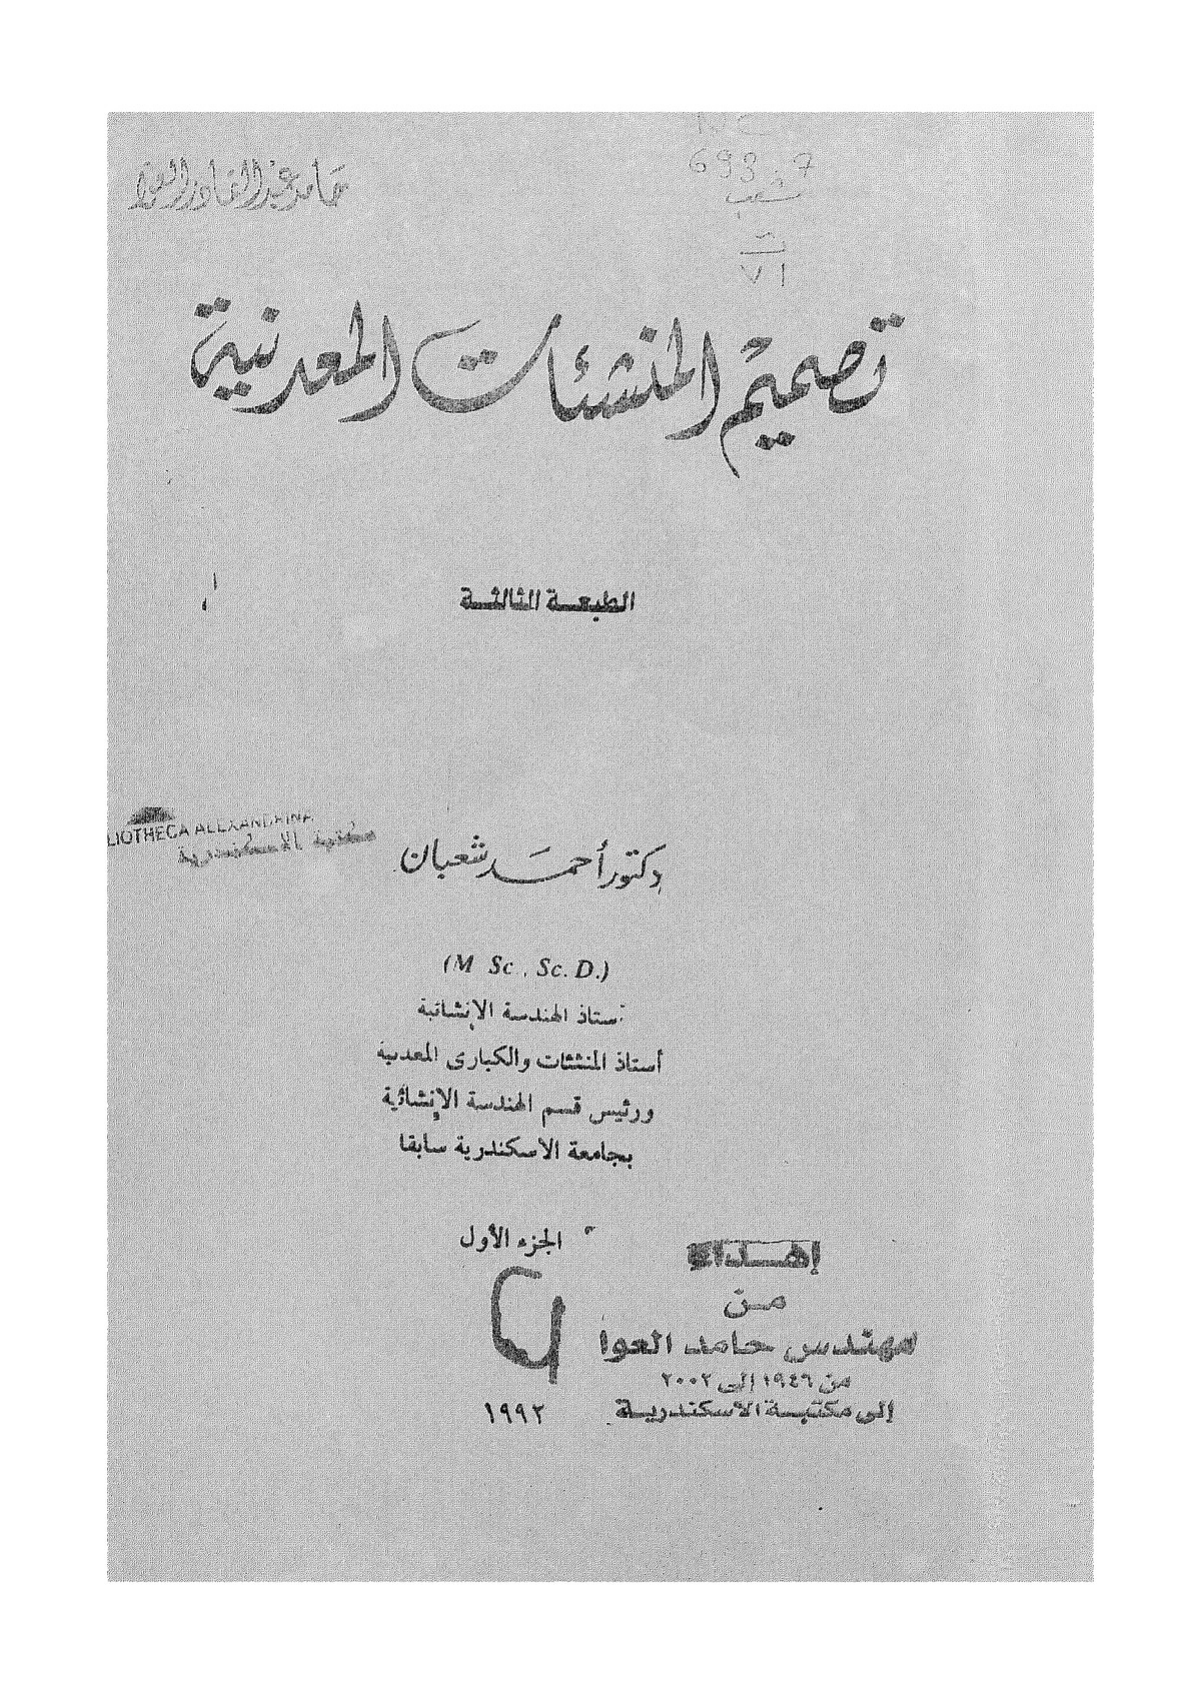 حامد عبد القادر العوا
693.7
شعب
ت
٧١
تصميم المنشئات المعدنية
الطبعة الثالثة
LIOTHECA ALEXANDRINA
مكتبة الاسكندرية
دكتور أحمد شعبان
(M Sc., Sc. D.)
ستاذ الهندسة الإنشائية
أستاذ المنشئات والكبارى المعدنية
ورئيس قسم الهندسة الإنشائية
بجامعة الاسكندرية سابقا
الجزء الأول
إهداء
من
مهندس حامد العوا
من ١٩٤٦ إلى ٢٠٠٢
إلى مكتبة الاسكندرية
١٩٩٢